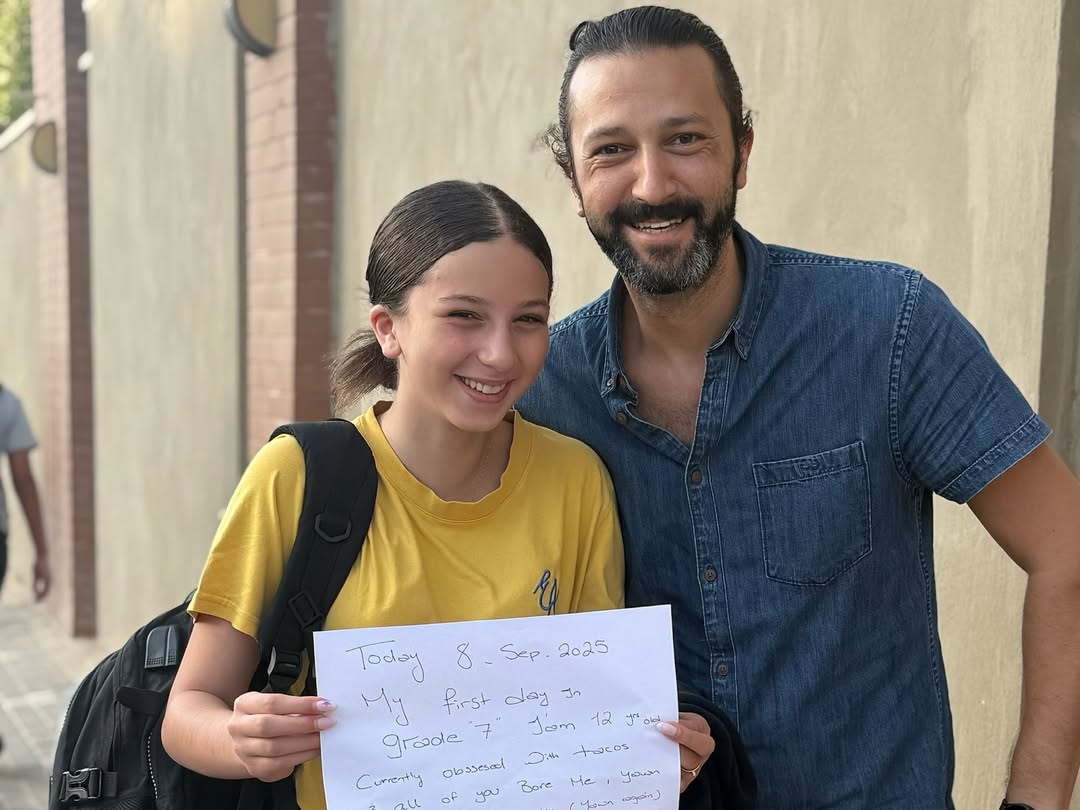 Today 8 - Sep. 2025
My first day In
grade "7" I'am 12 yrs old
Currently obssesed With tacos
& all of you Bore Me, yawn
(Yawn again)